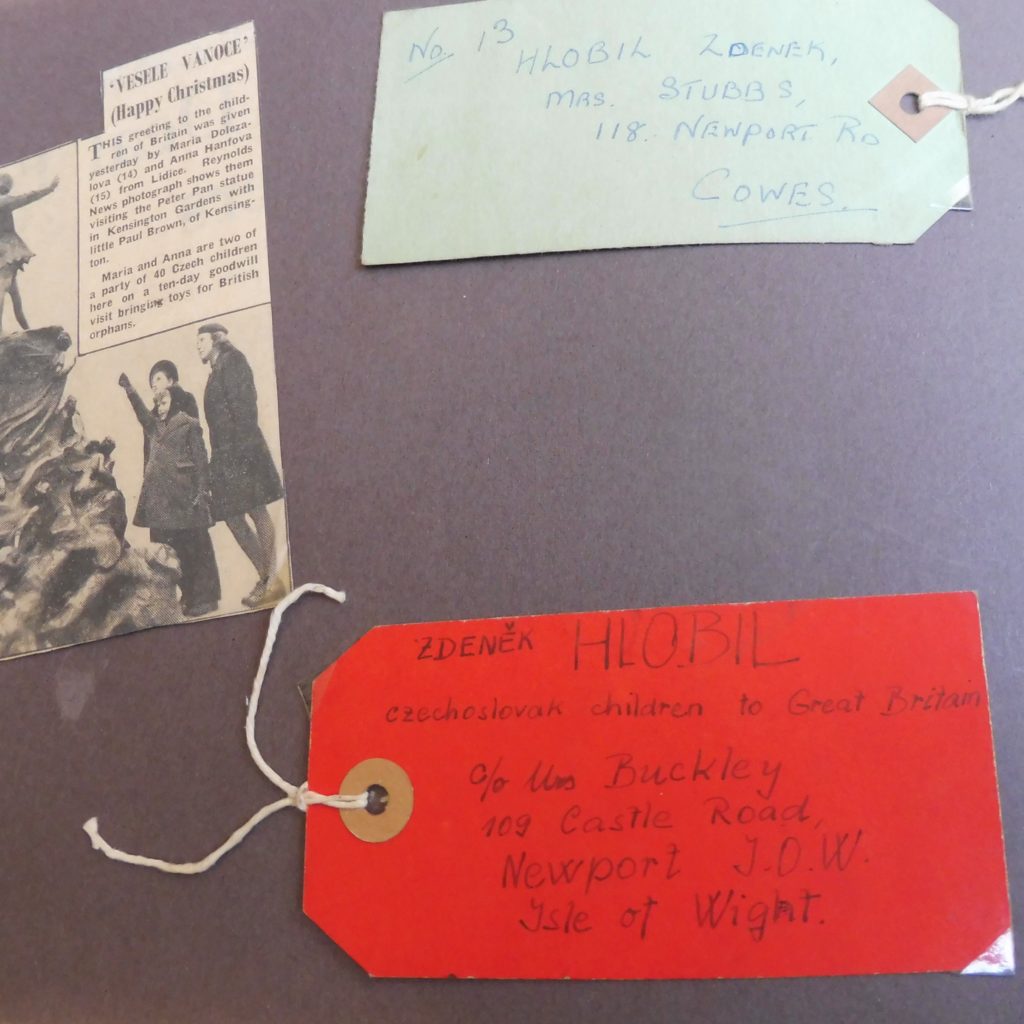 'VESELE VANOCE'
(Happy Christmas)
THIS greeting to the child-
ren of Britain was given
yesterday by Maria Doleza-
lova (14) and Anna Hanfova
(15) from Lidice. Reynolds
News photograph shows them
visiting the Peter Pan statue
in Kensington Gardens with
little Paul Brown, of Kensing-
ton.
Maria and Anna are two of
a party of 40 Czech children
here on a ten-day goodwill
visit bringing toys for British
orphans.
No. 13
HLOBIL ZDENEK,
MRS. STUBBS,
118. NEWPORT RD
COWES.
ZDENĚK HLOBIL
czechoslovak children to Great Britain
c/o Mrs Buckley
109 Castle Road,
Newport I.O.W.
Isle of Wight.